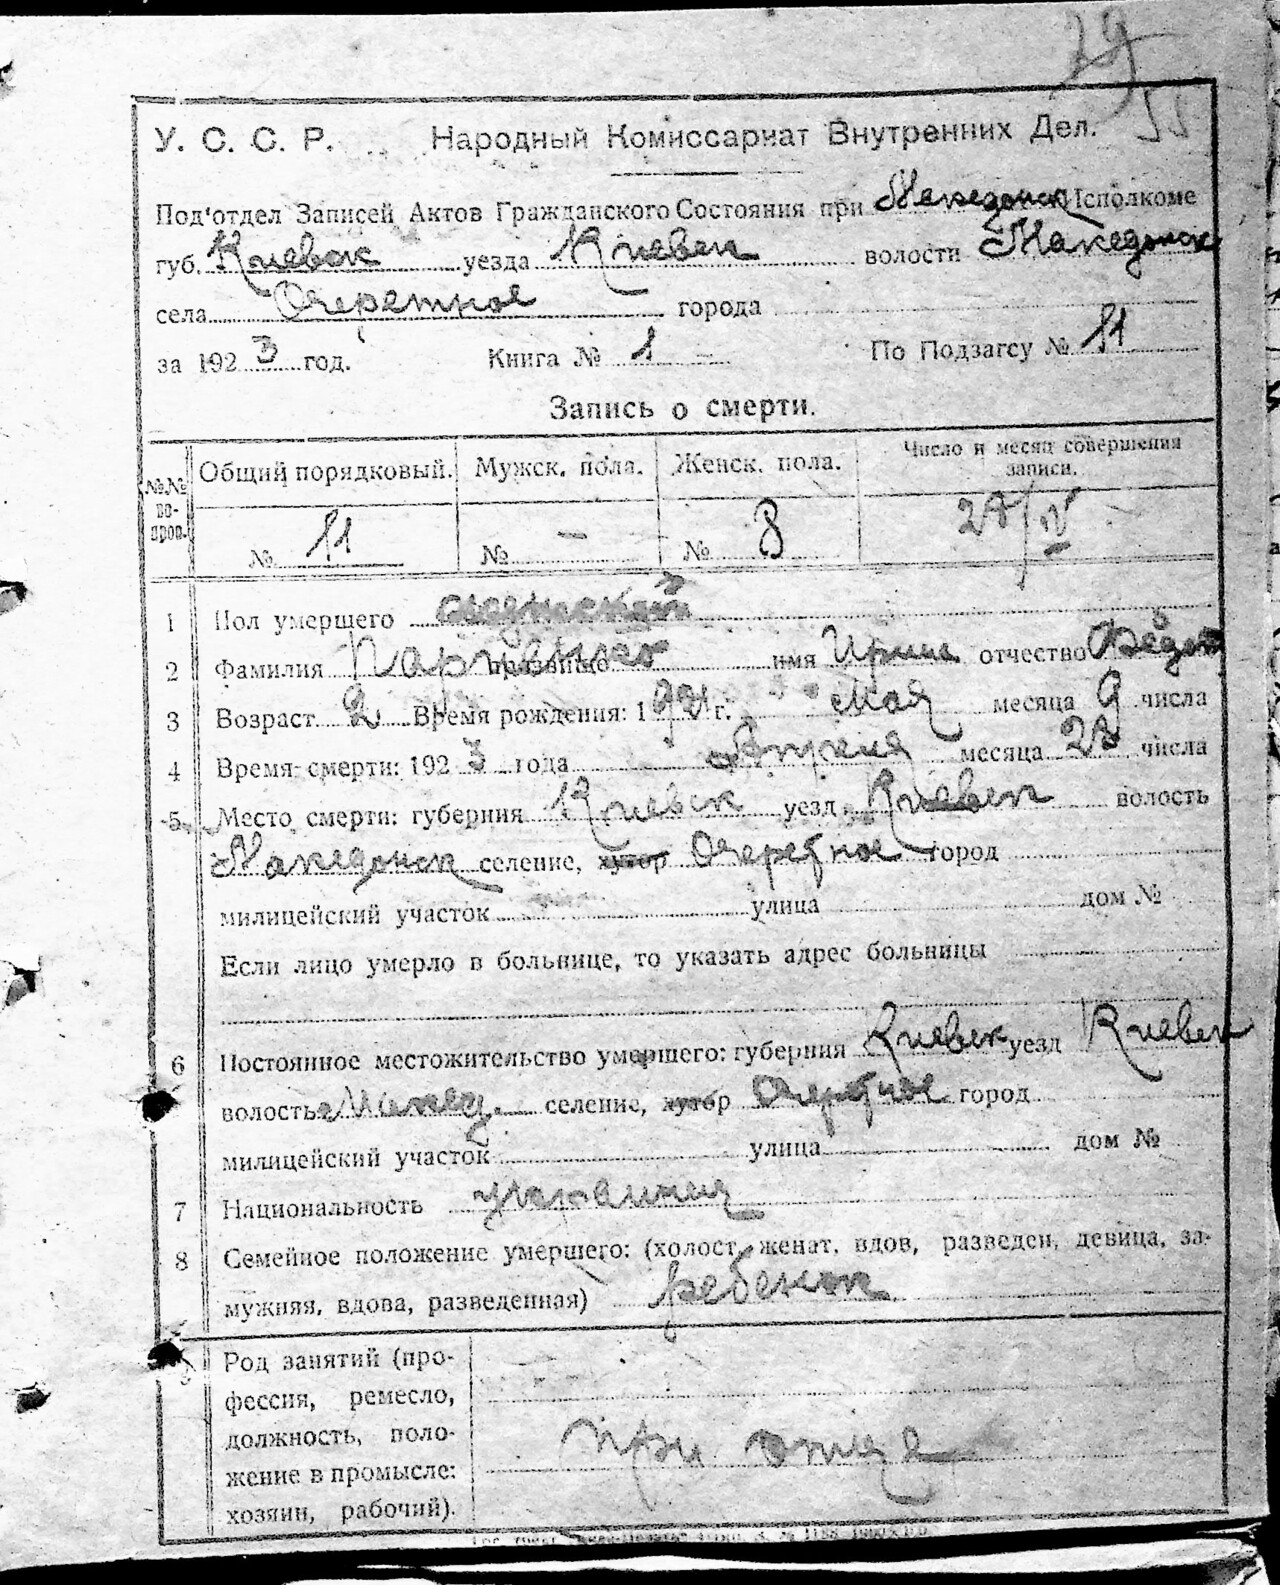 29
55
У. С. С. Р. Народный Комиссариат Внутренних Дел.
Под'отдел Записей Актов Гражданского Состояния при Македонск Исполкоме
губ. Киевск уезда Киевск волости Македонск
села Очеретное города
за 1923 год. Книга № 1 По Подзагсу № 11
Запись о смерти.
№№ во-прос. Общий порядковый. Мужск. пола. Женск. пола. Число и месяц совершения записи.
№ 11 № — № 8 28/IV
1 Пол умершего женский
2 Фамилия прозвище имя Ирина отчество Федот
3 Возраст 2 Время рождения: 1921 г. Мая месяца 9 числа
4 Время смерти: 1923 года Апреля месяца 28 числа
5 Место смерти: губерния Киевск уезд Киевск волость
Македонск селение, хутор Очеретное город
милицейский участок улица дом №
Если лицо умерло в больнице, то указать адрес больницы
6 Постоянное местожительство умершего: губерния Киевск уезд Киевск
волость Макед. селение, хутор Очеретное город
милицейский участок улица дом №
7 Национальность
8 Семейное положение умершего: (холост, женат, вдов, разведен, девица, за-
мужняя, вдова, разведенная) ребенок
9 Род занятий (про-
фессия, ремесло,
должность, поло-
жение в промысле:
хозяин, рабочий).
при отце